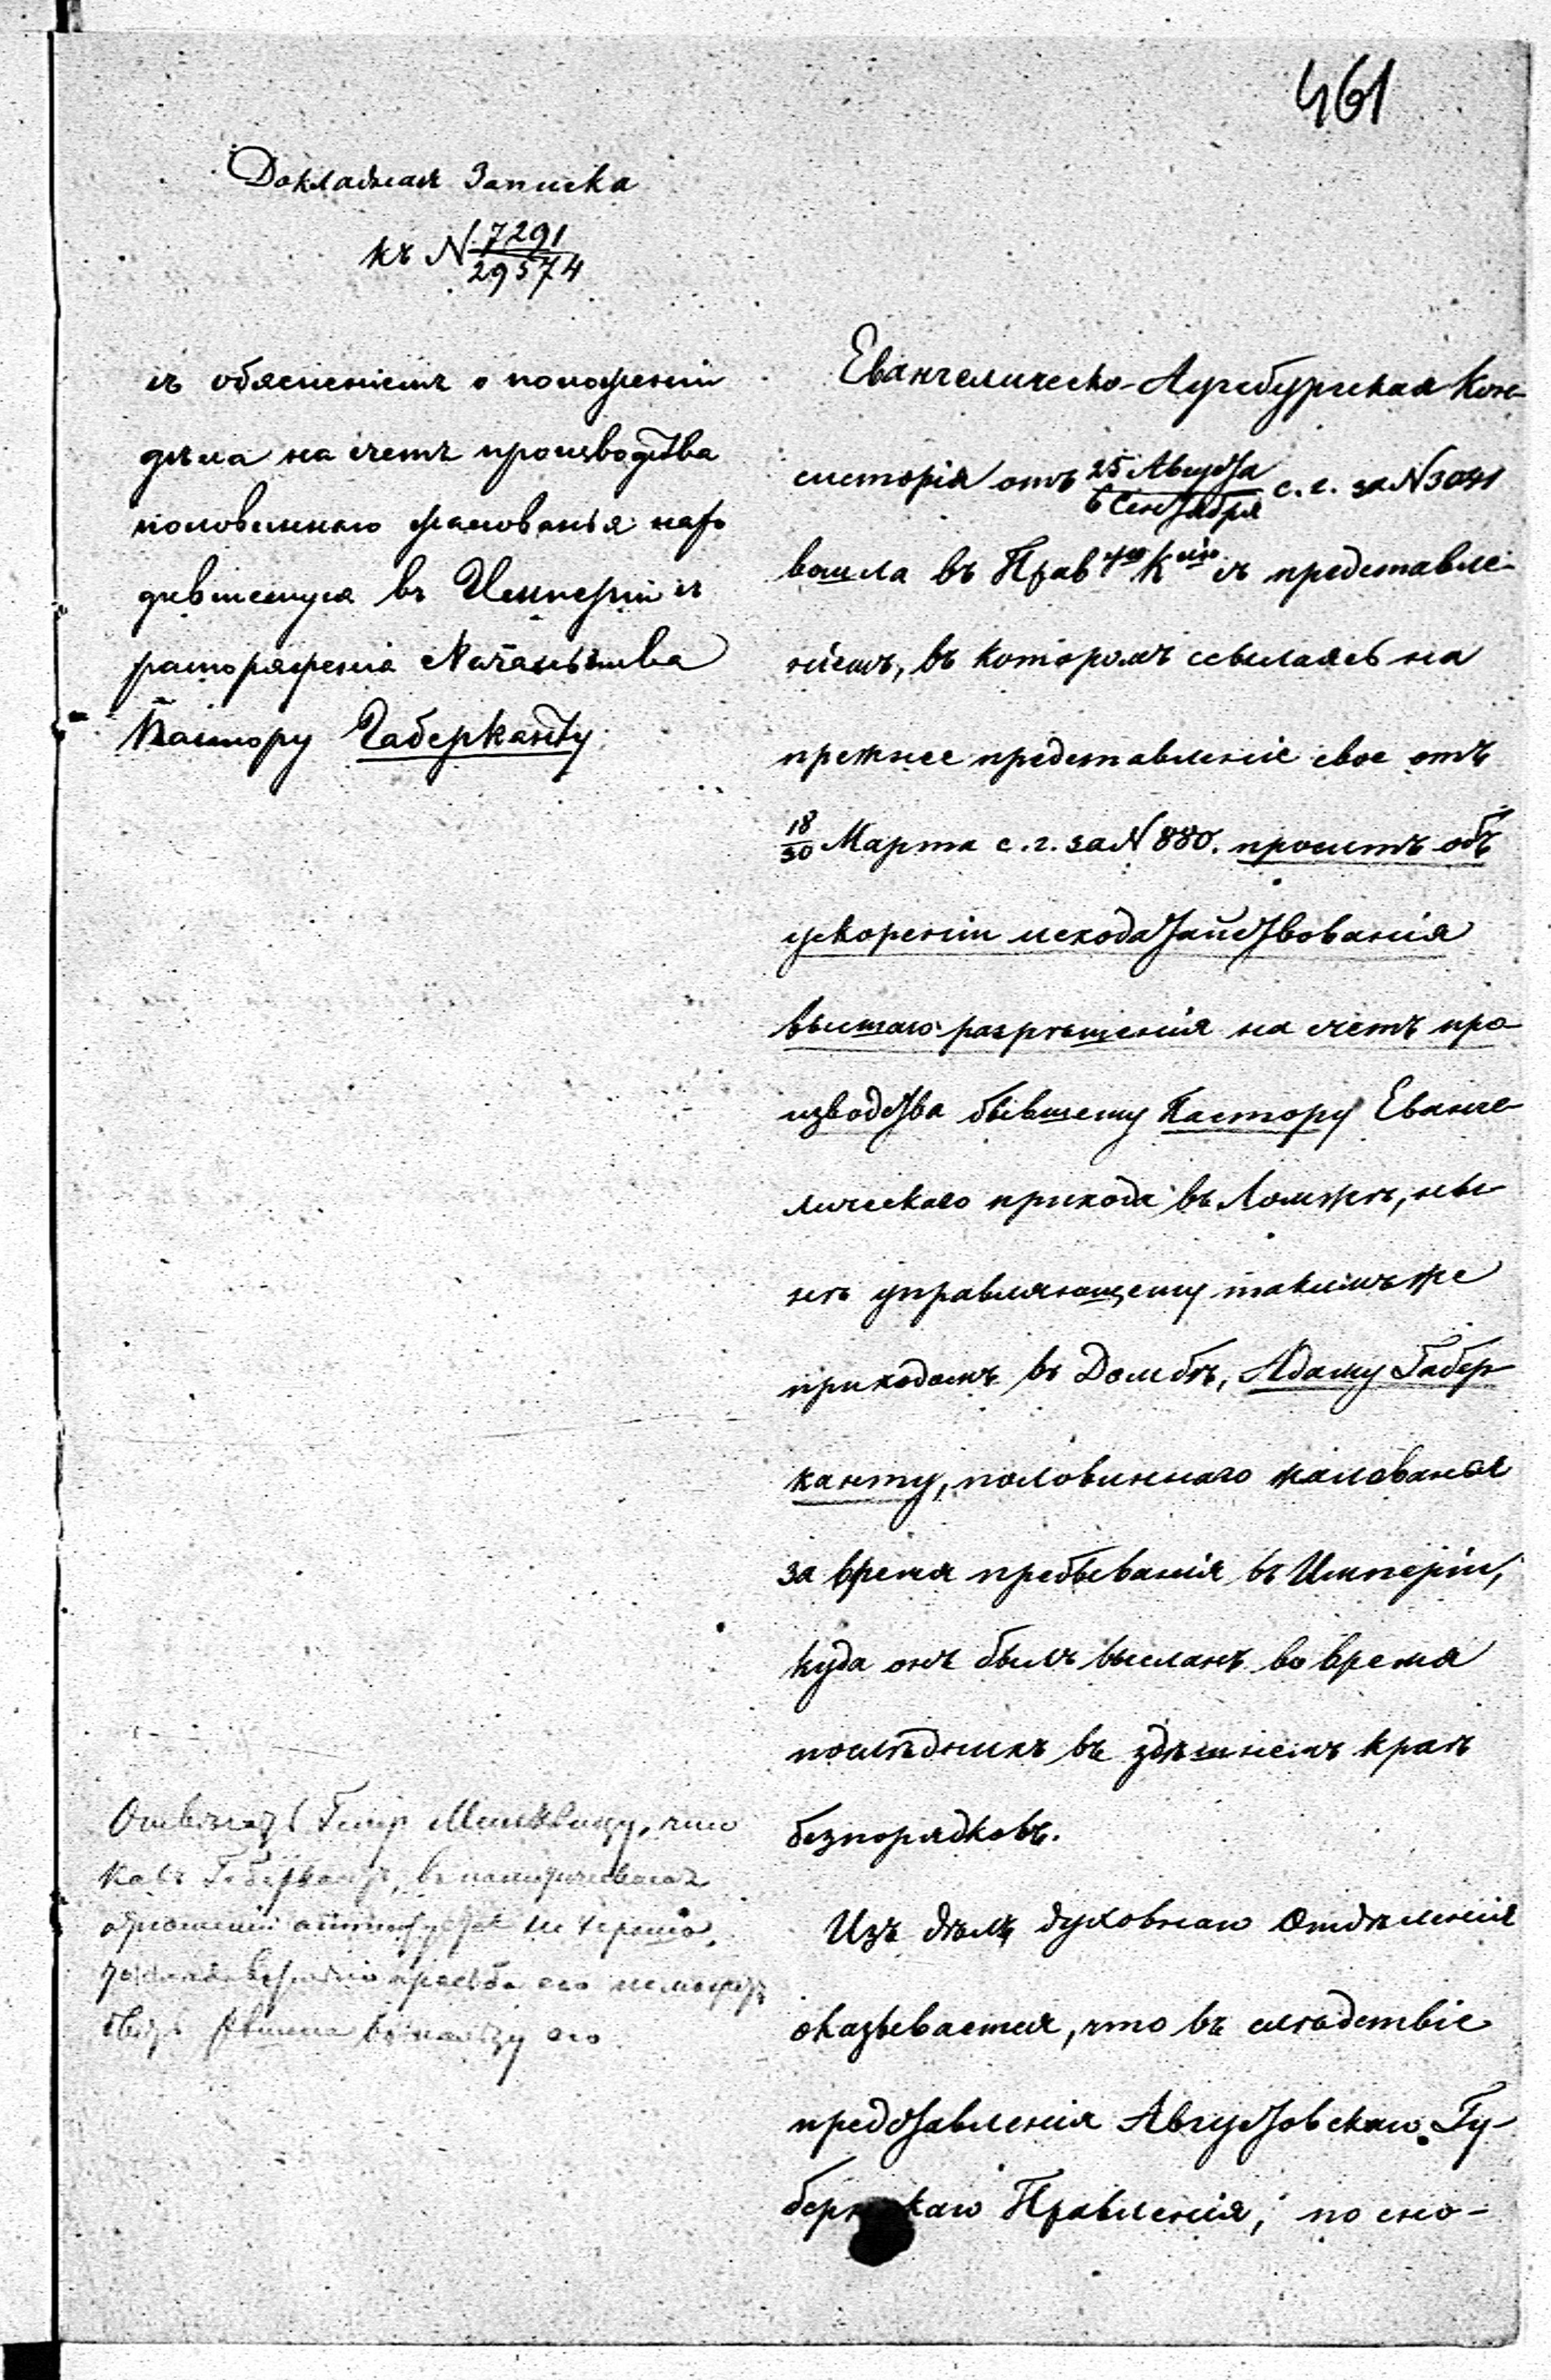 461
Докладная Записка
къ N 7291/29574
съ объясненіемъ о положеніи
дѣла на счетъ производства
половиннаго жалованья нахо
дившемуся въ Имперіи съ
распоряженія Начальства
Пастору Габерканту
Евангелическо-Аугсбургская Кон-
систорія отъ 25 Августа/6 Сентября с. г. за N 3041
вошла въ Прав ую К ію съ представле-
ніемъ, въ которомъ ссылаясь на
прежнее представленіе свое отъ
18/30 Марта с. г. за N 880. проситъ объ
ускореніи исходатайствованія
высшаго разрѣшенія на счетъ про-
изводства бывшему Пастору Еванге-
лическаго прихода въ Ломжѣ, ны-
нѣ управляющему такимъ же
приходомъ въ Домбѣ, Адаму Габер-
канту, половиннаго жалованья
за время пребыванія въ Имперіи,
куда онъ былъ высланъ во время
послѣднихъ въ здѣшнемъ краѣ
безпорядковъ.
Изъ дѣлъ духовнаго Отдѣленія
оказывается, что въ слѣдствіе
представленія Августовскаго Гу-
бернскаго Правленія, по сно-
Отвѣчать Минквицу, что
въ политическомъ
отношеніи не хорошо,
просьба его не можетъ
быть рѣшена въ пользу его